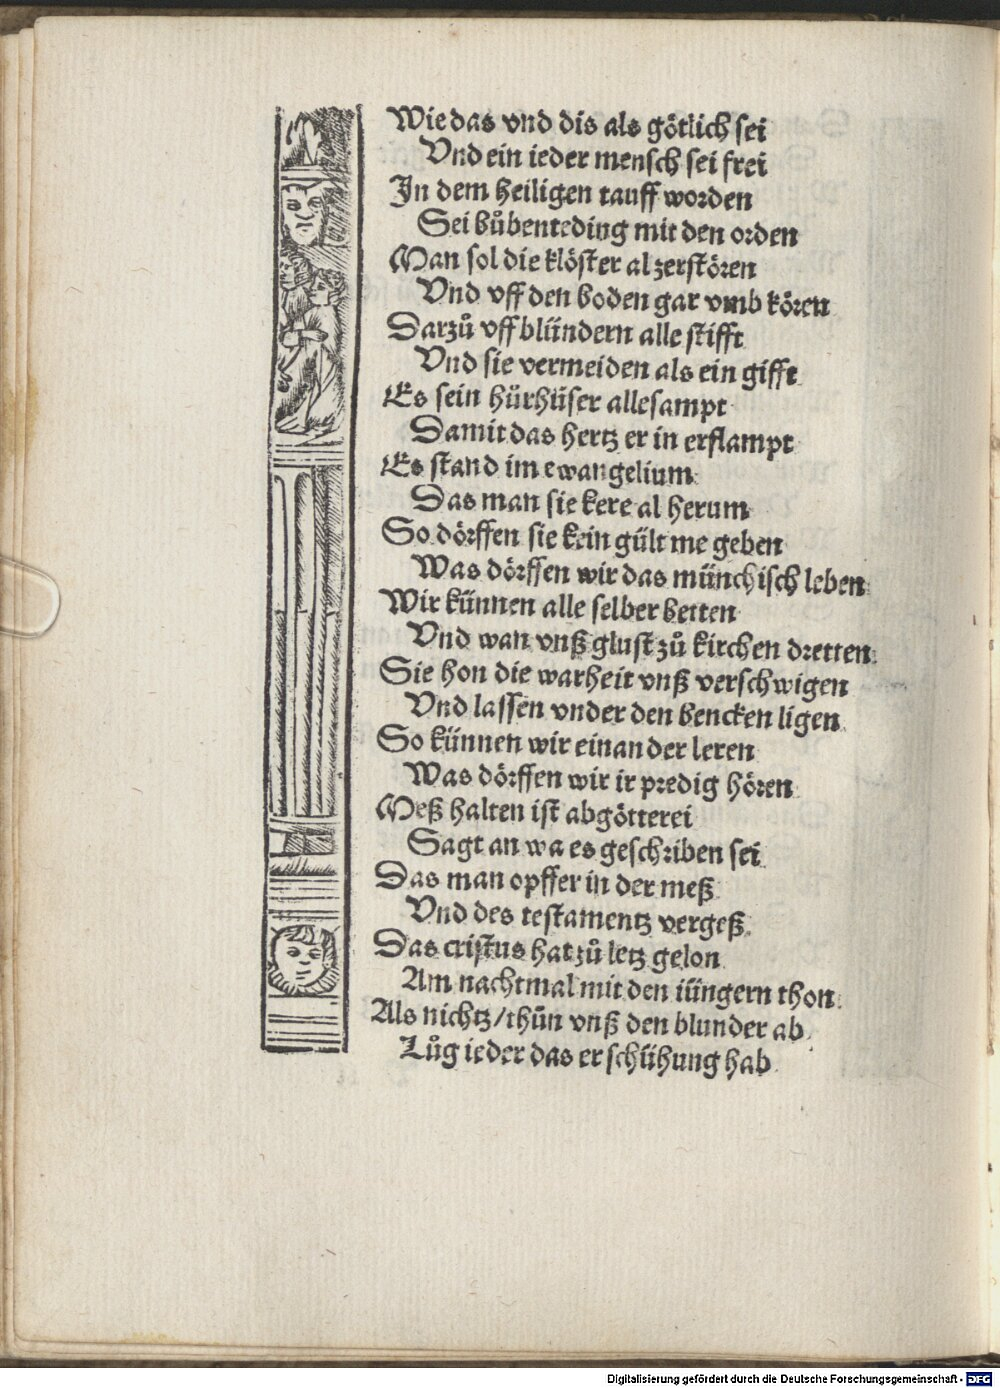 Wie das vnd dis als götlich sei
Vnd ein ieder mensch sei frei
In dem heiligen tauff worden
Sei bůbenteding mit den orden
Man sol die klöster al zerstören
Vnd vff den boden gar vmb kören
Darzů vff blündern alle stifft
Vnd sie vermeiden als ein gifft
Es sein hůrhüser allesampt
Damit das hertz er in erflampt
Es stand im ewangelium
Das man sie kere al herum
So dörffen sie kein gült me geben
Was dörffen wir das münchisch leben
Wir künnen alle selber betten
Vnd wan vnß glust zů kirchen dretten
Sie hon die warheit vnß verschwigen
Vnd lassen vnder den bencken ligen
So künnen wir einander leren
Was dörffen wir ir predig hören
Meß halten ist abgötterei
Sagt an wa es geschriben sei
Das man opffer in der meß
Vnd des testamentz vergeß
Das cristus hat zů letz gelon
Am nachtmal mit den iüngern thon
Als nichtz/thůn vnß den blunder ab
Lůg ieder das er schühung hab
Digitalisierung gefördert durch die Deutsche Forschungsgemeinschaft - DFG